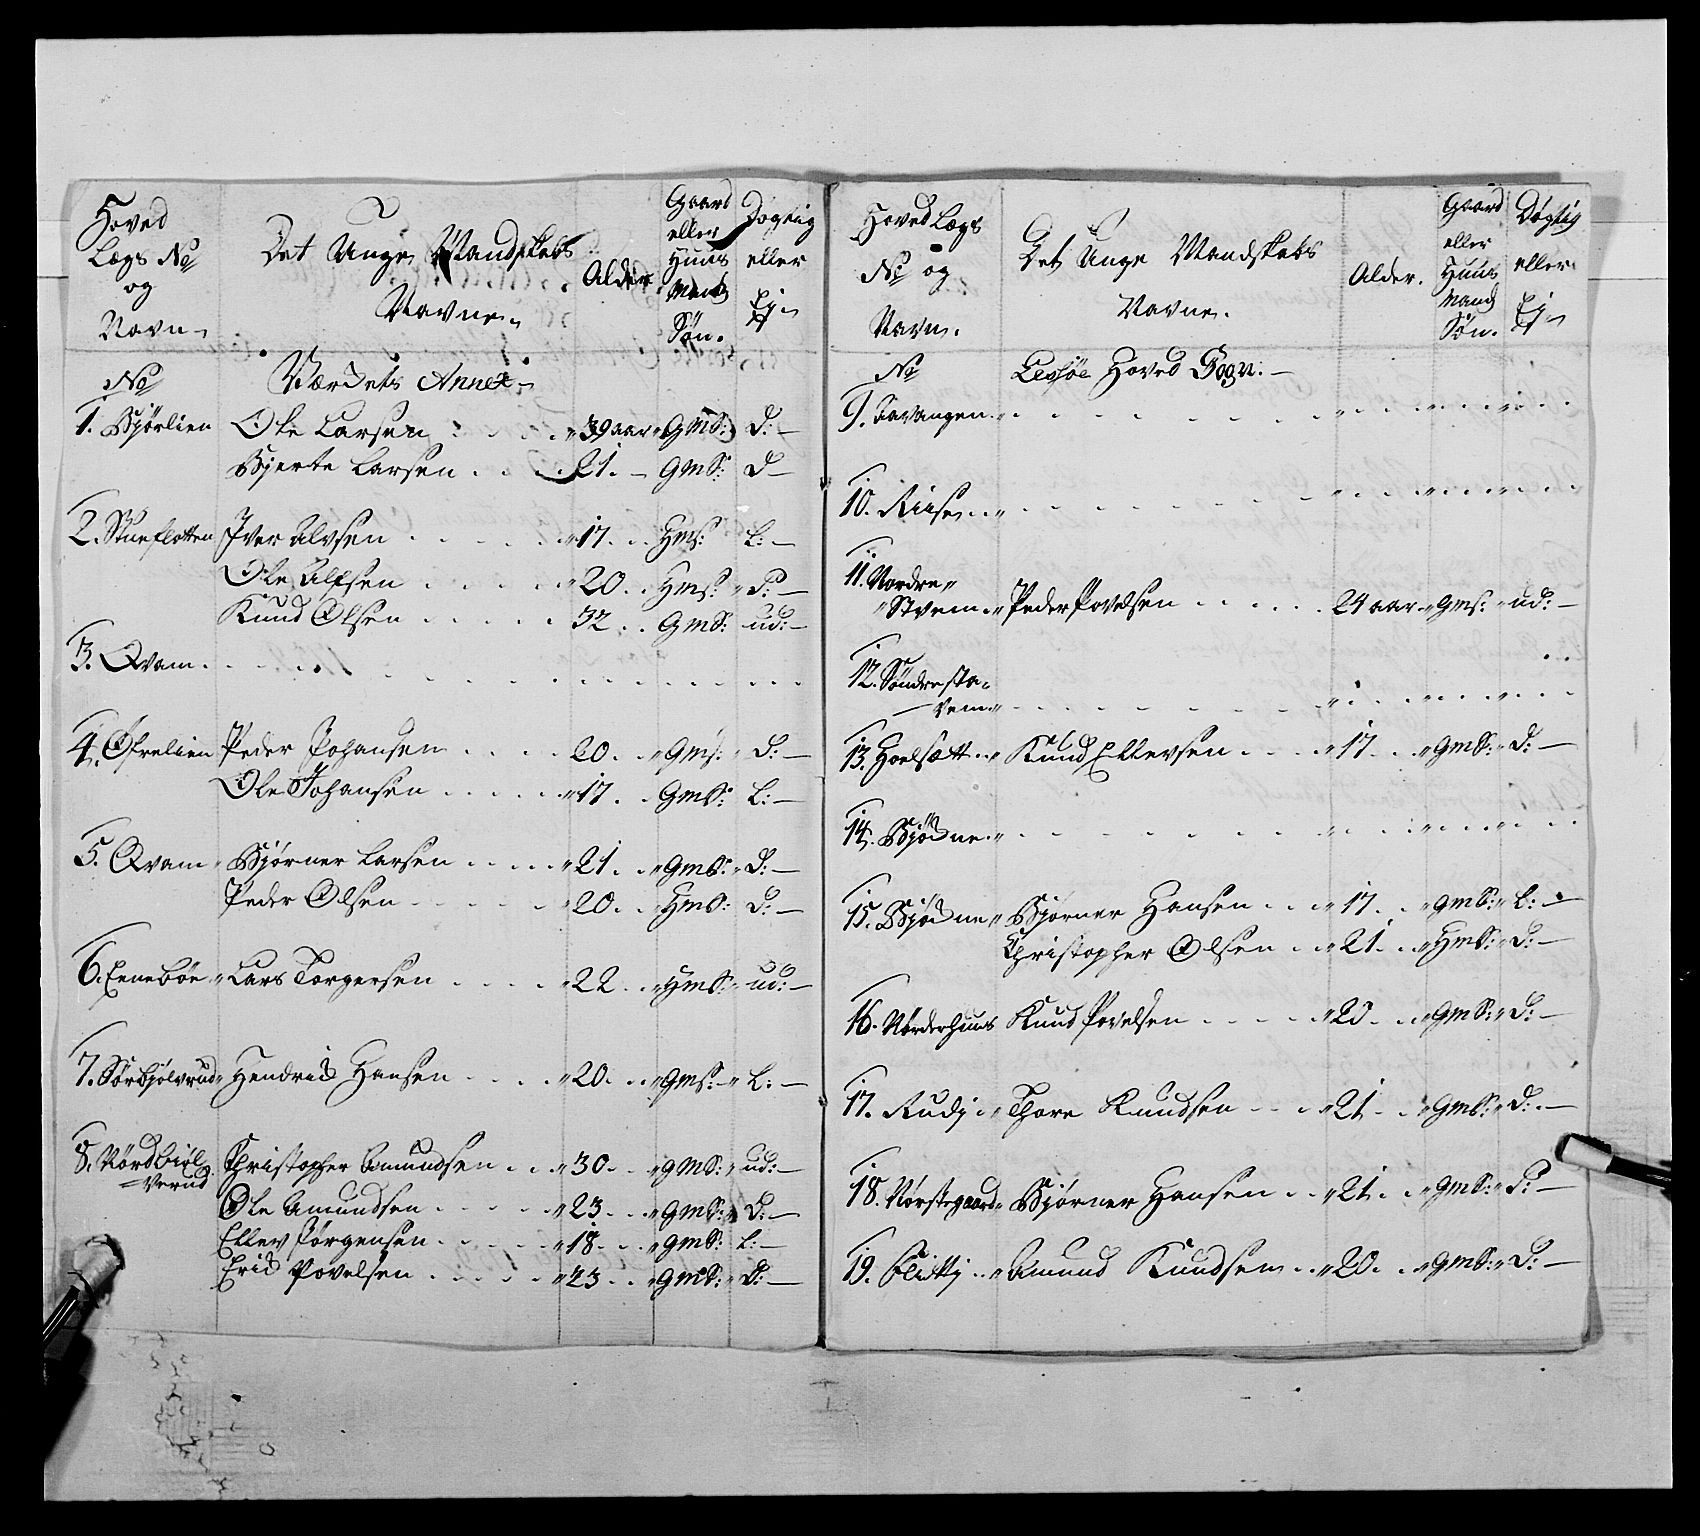 Hoved
Lægs No
og
Navn
Det Unge Mandskabs
Navne
Alder
Gaard
eller
Huus
Mands
Søn.
Dygtig
eller
Ey
No Værdets Annex
1. Bjørlien Ole Larsen 39 aar GmS: D:
Bjerte Larsen 21. GmS: D
2. Stueflotten Iver Alvsen 17. HmS: L:
Ole Alfsen 20. HmS: D:
Knud Olsen 32. GmS: ud:
3. Qvam
4. Øfrelien Peder Johansen 20. GmS: D:
Ole Johansen 17. GmS: L:
5. Qvam Bjørner Larsen 21. GmS: D:
Peder Olsen 20. HmS: D:
6. Ennebøe Lars Torgersen 22. HmS: ud:
7. Sørbjølvrud Hendrich Hansen 20. GmS: L:
8. Nordbiøl Christopher Amundsen 30. GmS: ud:
=verud
Ole Amundsen 23. GmS: D:
Ellev Jørgensen 18. GmS: L:
Erich Povelsen 23. GmS: D:
Hoved Lægs
No og
Navn.
Det Unge Mandskabs
Navne.
Alder.
Gaard
eller
Huus
Mands
Søn.
Døgtig
eller
Ey
No Lessøe Hoved Sogn:
9. Tavangen
10. Riise
11. Nordre
Stvem Peder Povelsen 24 aar GmS: ud:
12. Søndre sta=
vem
13. Hoelsætt Knud Ellevsen 17. GmS: D:
14. Bjødne
15. Bjødne Bjørner Hansen 17. GmS: L:
Christopher Olsen 21. HmS: D:
16. Nørderhuus Knud Povelsen 20. GmS: D:
17. Rudj Thore Knudsen 21. GmS: D:
18. Nørstegaard Bjørner Hansen 21. GmS: D:
19. Amund Knudsen 20. GmS: D: